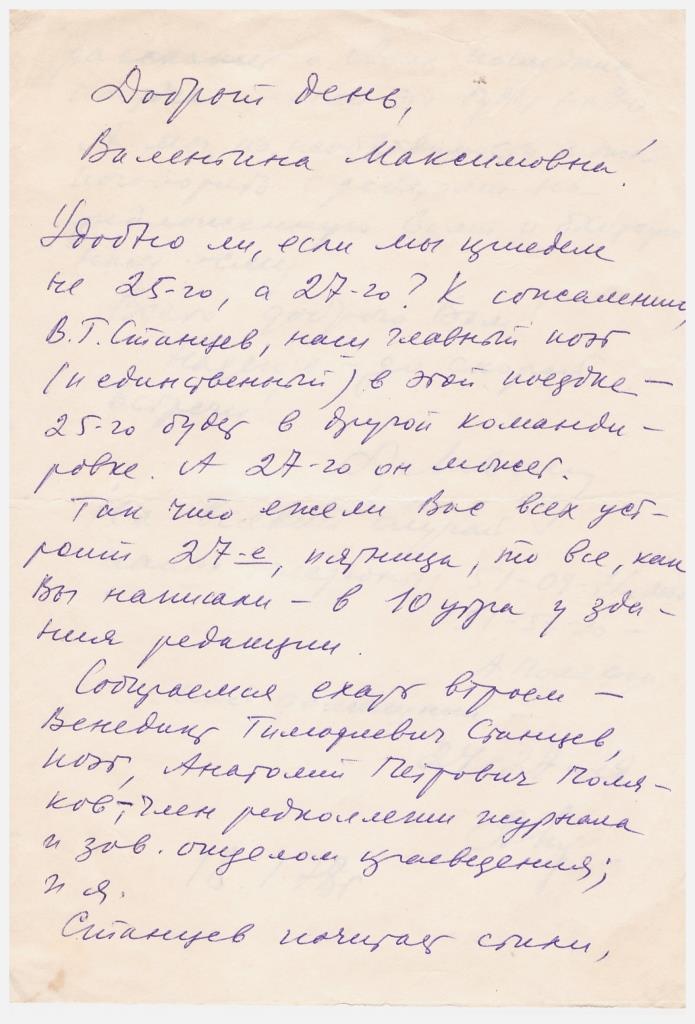 Добрый день,
Валентина Максимовна!
Удобно ли, если мы приедем
не 25-го, а 27-го? К сожалению,
В.Т. Станцев, наш главный поэт
(и единственный) в этой поездке —
25-го будет в другой команди-
ровке. А 27-го он может.
Так что ежели Вас всех уст-
роит 27-е, пятница, то все, как
Вы написали — в 10 утра у зда-
ния редакции.
Собираемся ехать втроем —
Венедикт Тимофеевич Станцев,
поэт, Анатолий Петрович Поля-
ков — член редколлегии журнала
и зав. отделом краеведения;
и я.
Станцев почитает стихи,